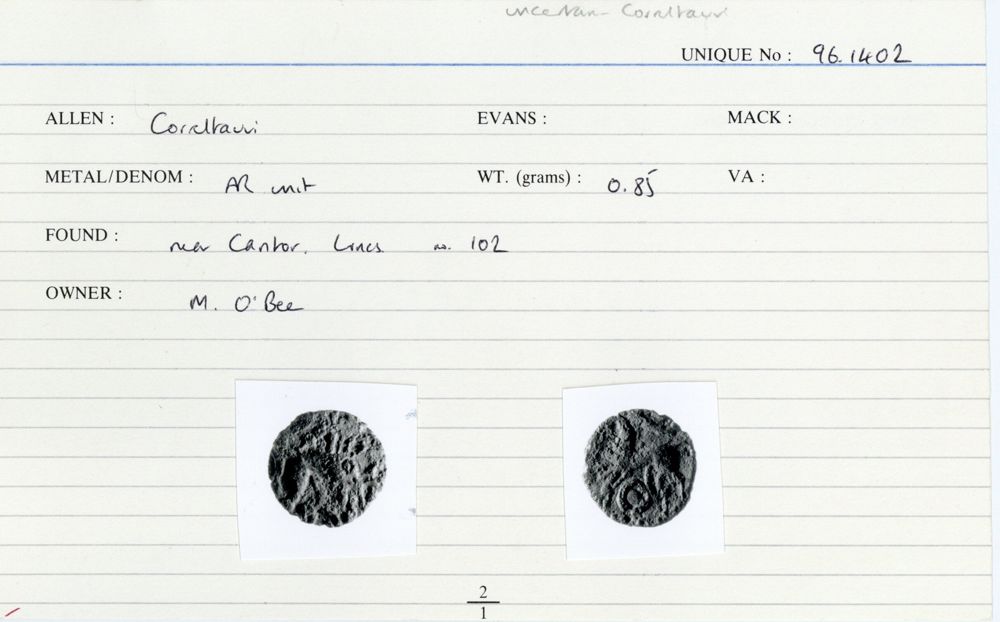 uncertain - Correltauvi
UNIQUE No : 96.1402
ALLEN : Correltauvi EVANS : MACK :
METAL/DENOM : AR unit WT. (grams) : 0.85 VA :
FOUND : near Cantor, Lincs no. 102
OWNER : M. O'Bee
2
1